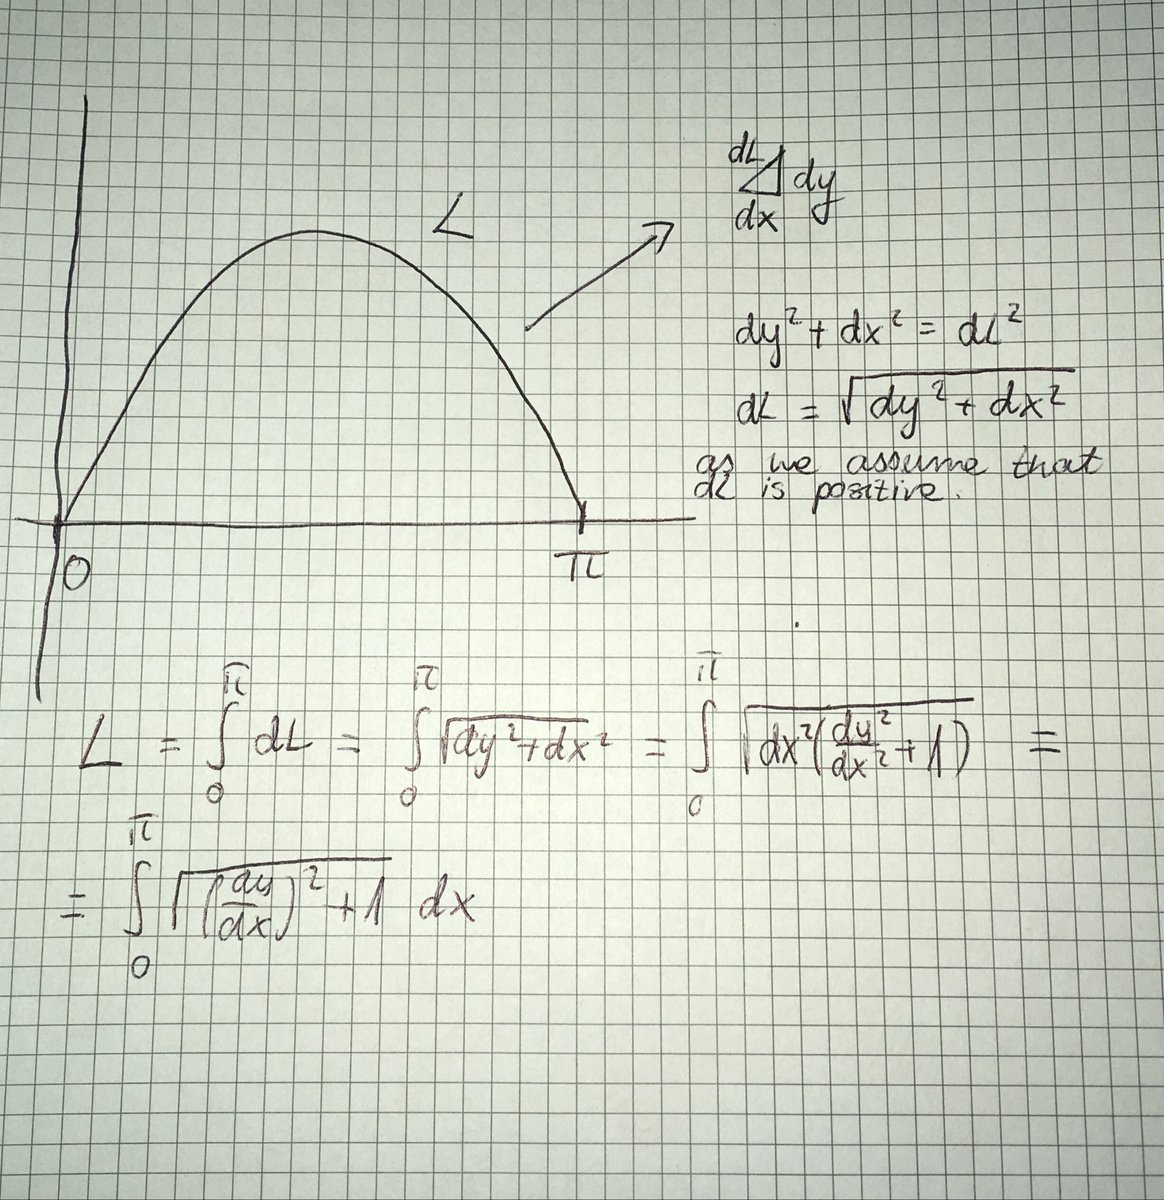 L
dL
dy
dx
dy² + dx² = dL²
dL = √(dy² + dx²)
as we assume that
dL is positive.
0
π
L = ∫₀^π dL = ∫₀^π √(dy² + dx²) = ∫₀^π √(dx²(dy²/dx² + 1)) =
= ∫₀^π √((dy/dx)² + 1) dx